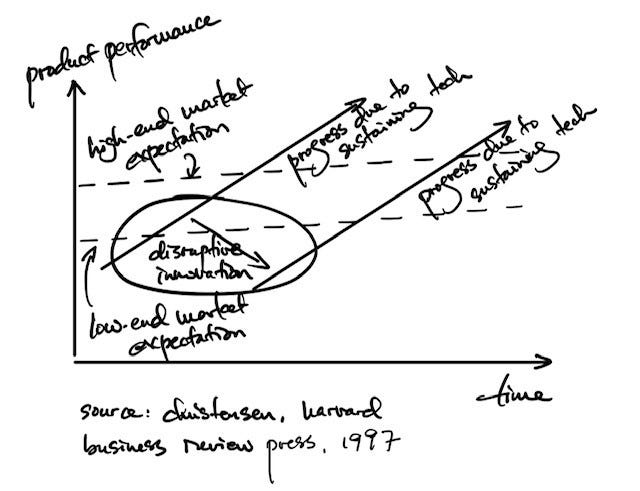 product performance
high-end market
expectation
progress due to
sustaining tech
progress due to
sustaining tech
disruptive
innovation
low-end market
expectation
time
source: christensen, harvard
business review press, 1997